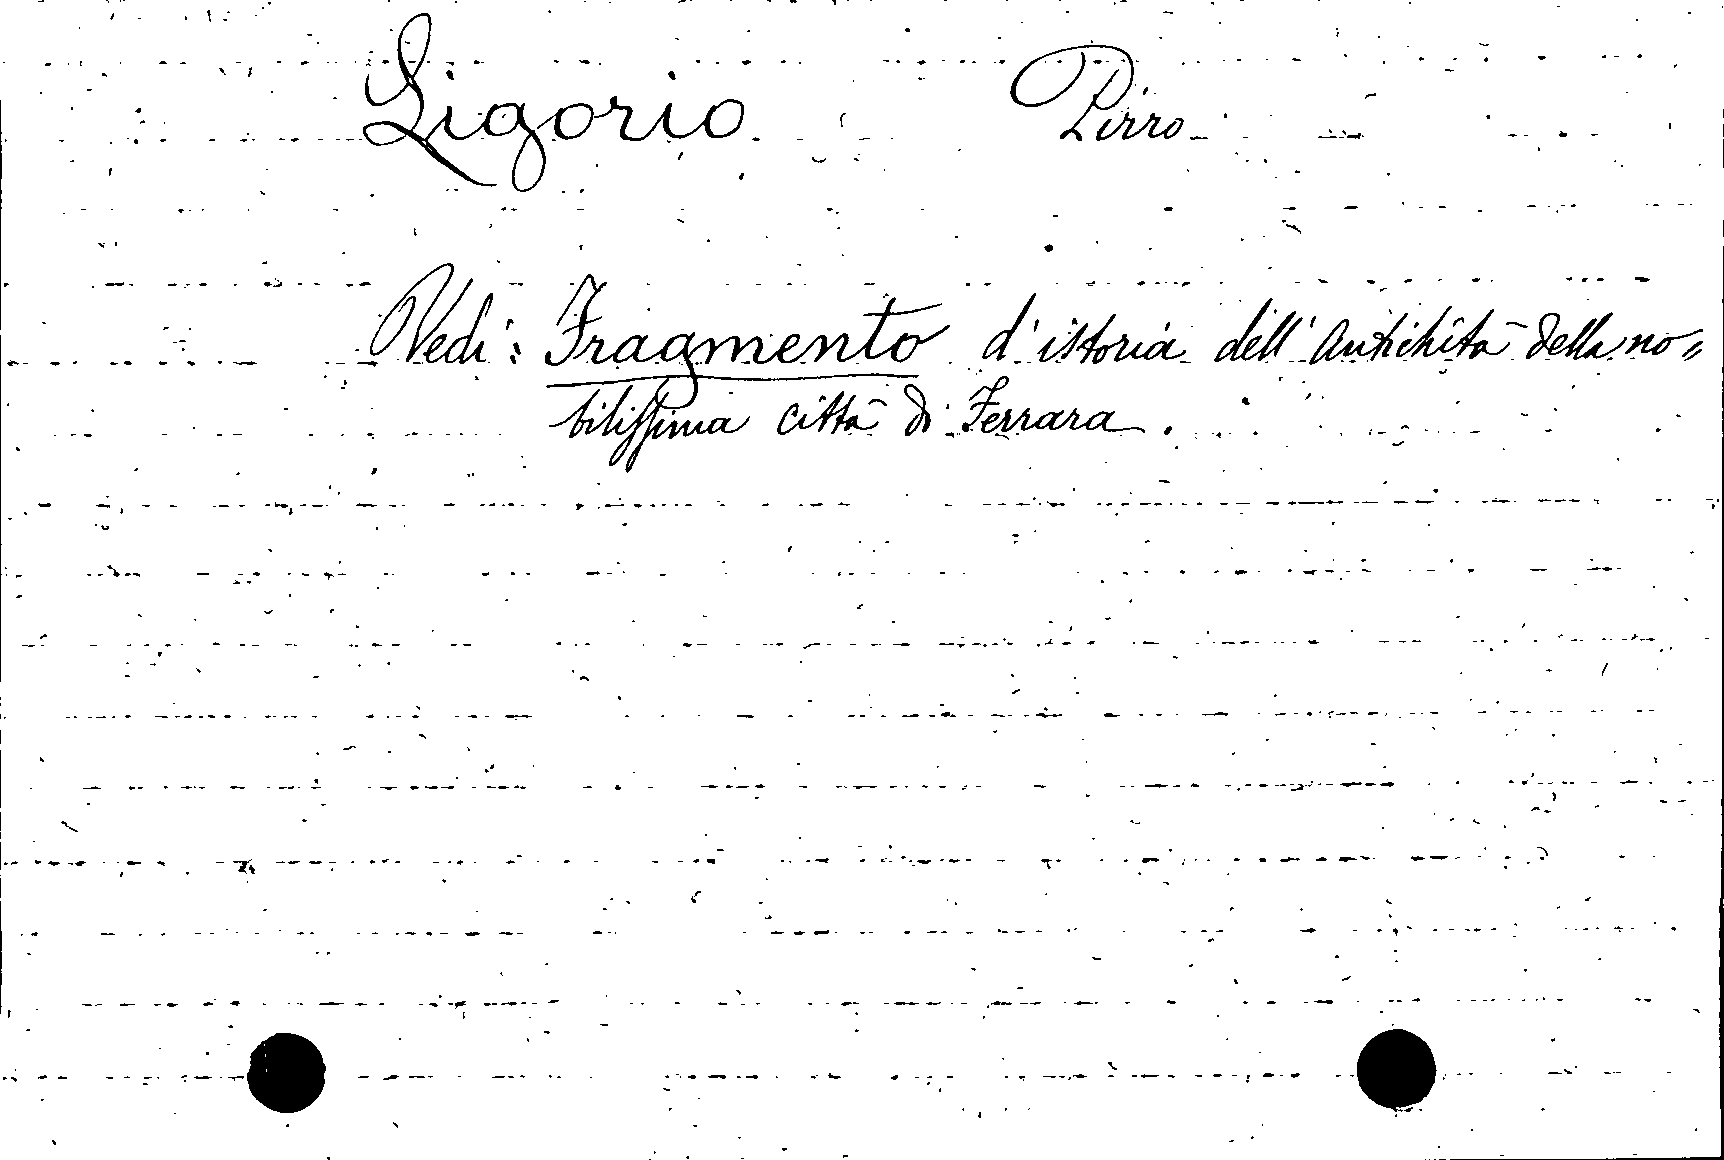 Ligorio Pirro
Vedi: Fragmento d'istoria dell'Antichità della no=
bilissima città di Ferrara.